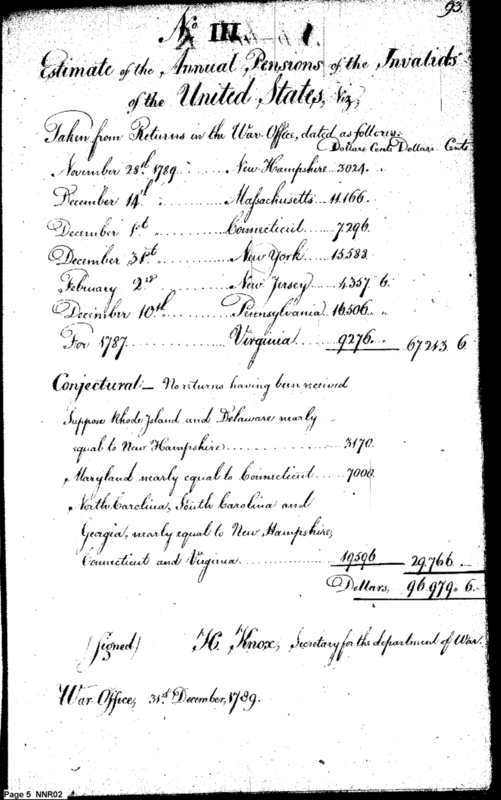 93
No. III.
Estimate of the Annual Pensions of the Invalids
of the United States, Viz;
Taken from Returns in the War Office, dated as follows:
Dollars Cents Dollars Cents
November 28th 1789 New Hampshire 3024.
December 14th Massachusetts 11166.
December 1st Connecticut 7296.
December 31st New York 15588.
February 2nd New Jersey 4357 6.
December 10th Pennsylvania 16506 "
For 1787 Virginia 9276 67213 6.
Conjectural — No returns having been received
Suppose Rhode Island and Delaware nearly
equal to New Hampshire 3170.
Maryland nearly equal to Connecticut 7000.
North Carolina, South Carolina and
Georgia, nearly equal to New Hampshire,
Connecticut and Virginia 19596 29,766
Dollars, 96,979. 6.
(signed) H. Knox, Secretary for the department of War.
War Office, 31st December, 1789.
Page 5 NNR02